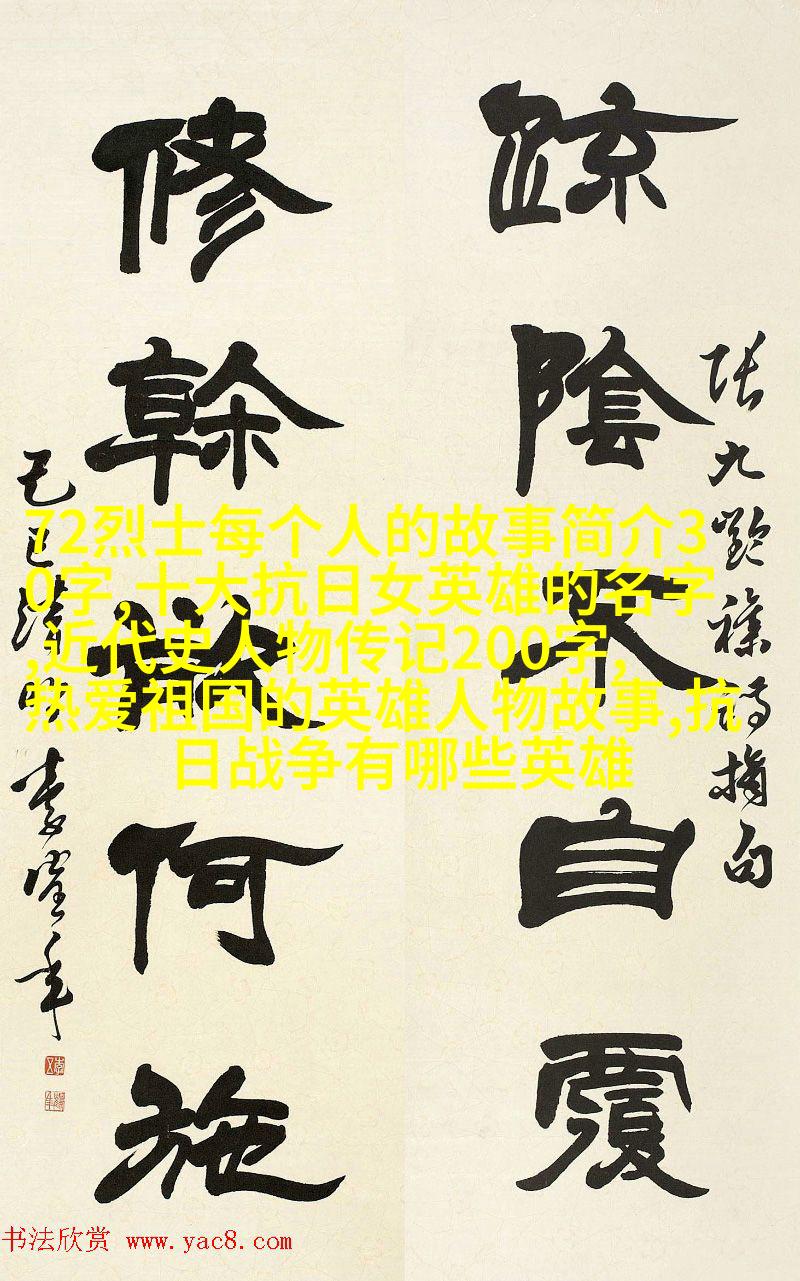 疏陰不自覆
張九齡雜詩摘句
修幹欲何施
己巳
72烈士每个人的故事简介3
0字,十大抗日女英雄的名字
,近代史人物传记200字,
热爱祖国的英雄人物故事,抗
日战争有哪些英雄
书法欣赏 www.yac8.com